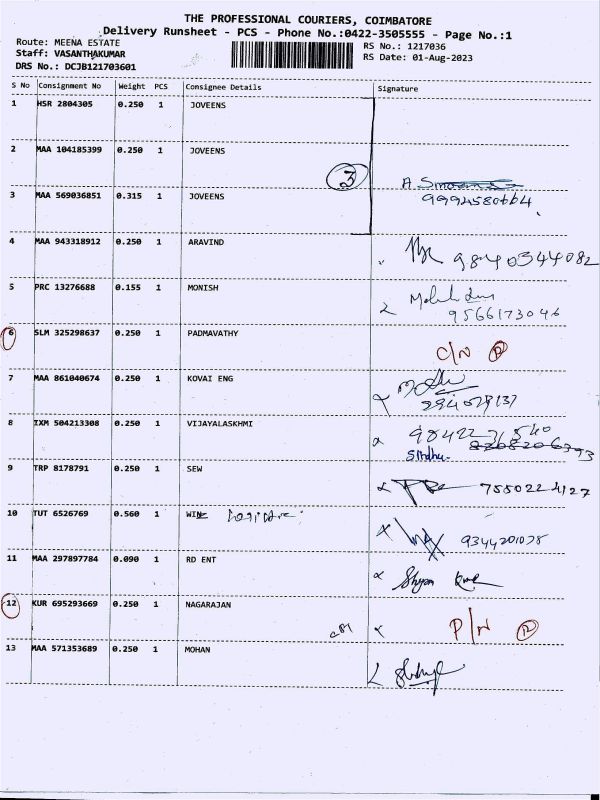 THE PROFESSIONAL COURIERS, COIMBATORE
Delivery Runsheet - PCS - Phone No.:0422-3505555 - Page No.:1
Route: MEENA ESTATE
RS No.: 1217036
Staff: VASANTHAKUMAR
RS Date: 01-Aug-2023
DRS No.: DCJB121703601
S No Consignment No Weight PCS Consignee Details Signature
1 HSR 2804305 0.250 1 JOVEENS
2 MAA 104185399 0.250 1 JOVEENS
3
3 MAA 569036851 0.315 1 JOVEENS
4 MAA 943318912 0.250 1 ARAVIND 9840344082
5 PRC 13276688 0.155 1 MONISH
9566173046
6 SLM 325298637 0.250 1 PADMAVATHY
C/N R
7 MAA 861040674 0.250 1 KOVAI ENG
8 IXM 504213308 0.250 1 VIJAYALASKHMI
Sindhu.
9 TRP 8178791 0.250 1 SEW
7550224127
10 TUT 6526769 0.560 1 WIN
9344201078
11 MAA 297897784 0.090 1 RD ENT
Shyam
12 KUR 695293669 0.250 1 NAGARAJAN
P/N R
13 MAA 571353689 0.250 1 MOHAN